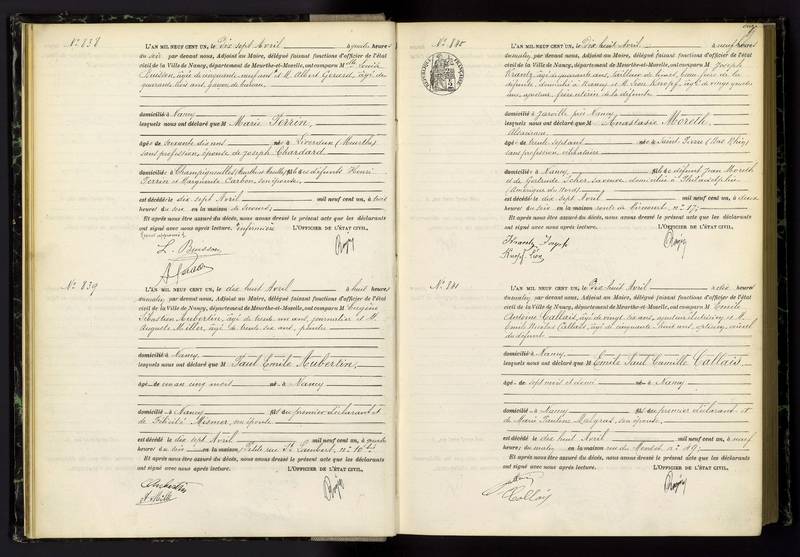 No. 838
L'AN MIL NEUF CENT UN, le Dix sept Avril à quatre heures
du soir par devant nous, Adjoint au Maire, délégué faisant fonctions d'officier de l'état
civil de la Ville de Nancy, département de Meurthe-et-Moselle, ont comparu M
Buisson, âgée de cinquante neuf ans et M. Albert Gérard, âgé de
quarante trois ans, garçon de bureau,
domiciliés à Nancy
lesquels nous ont déclaré que M Marie Perrin,
âgée de soixante dix ans née à Liverdun (Meurthe)
sans profession, épouse de Joseph Chardard
domiciliée à Champigneulles fille des défunts Henri
Perrin et Marguerite Carbon, son épouse,
est décédée le dix sept Avril mil neuf cent un, à trois
heures du soir en la maison de Secours,
Et après nous être assuré du décès, nous avons dressé le présent acte que les déclarants
ont signé avec nous après lecture. infirmière L'OFFICIER DE L'ÉTAT CIVIL,
L. Buisson
No. 839
L'AN MIL NEUF CENT UN, le dix huit Avril à huit heures
du matin par devant nous, Adjoint au Maire, délégué faisant fonctions d'officier de l'état
civil de la Ville de Nancy, département de Meurthe-et-Moselle, ont comparu M Eugène
Sébastien Aubertin, âgé de trente un ans, journalier et M.
Auguste Miller, âgé de trente six ans, plâtrier
domiciliés à Nancy
lesquels nous ont déclaré que M Paul Emile Aubertin,
âgé de un an cinq mois né à Nancy
domicilié à Nancy fils du premier déclarant et
de Félicité Mismer, son épouse
est décédé le dix sept Avril mil neuf cent un, à quatre
heures du soir en la maison Petite rue St Lambert, no 10 bis
Et après nous être assuré du décès, nous avons dressé le présent acte que les déclarants
ont signé avec nous après lecture. L'OFFICIER DE L'ÉTAT CIVIL,
Aubertin
No. 840
L'AN MIL NEUF CENT UN, le Dix huit Avril à neuf heures
du matin par devant nous, Adjoint au Maire, délégué faisant fonctions d'officier de l'état
civil de la Ville de Nancy, département de Meurthe-et-Moselle, ont comparu M Joseph
Krantz, âgé de quarante ans, tailleur de , beau frère de la
défunte, domicilié à Nancy et M. Léon Knopf, âgé de vingt quatre
ans, , frère utérin de la défunte
domicilié à Jarville près Nancy
lesquels nous ont déclaré que M Anastasie Moreth,
Alsacienne
âgée de trente sept ans née à Saint Pierre (Bas Rhin)
sans profession, célibataire
domiciliée à Nancy fille de défunt Jean Moreth
et de Gertrude , sa veuve domiciliée à Philadelphie
(Amérique du Nord)
est décédée le dix sept Avril mil neuf cent un, à deux
heures du soir en la maison route de no 17,
Et après nous être assuré du décès, nous avons dressé le présent acte que les déclarants
ont signé avec nous après lecture. L'OFFICIER DE L'ÉTAT CIVIL,
Krantz Joseph
Knopf Léon
No. 841
L'AN MIL NEUF CENT UN, le Dix huit Avril à dix heures
du matin par devant nous, Adjoint au Maire, délégué faisant fonctions d'officier de l'état
civil de la Ville de Nancy, département de Meurthe-et-Moselle, ont comparu M Emile
Antoine Callais, âgé de vingt six ans, ajusteur électricien et M.
Emile Nicolas Callais, âgé de cinquante huit ans,
du défunt
domiciliés à Nancy
lesquels nous ont déclaré que M Emile Paul Camille Callais,
âgé de sept mois et demi né à Nancy
domicilié à Nancy fils du premier déclarant et
de Marie Pauline Malgras, son épouse,
est décédé le dix huit Avril mil neuf cent un, à neuf
heures du matin en la maison rue du no 49,
Et après nous être assuré du décès, nous avons dressé le présent acte que les déclarants
ont signé avec nous après lecture. L'OFFICIER DE L'ÉTAT CIVIL,
Callais